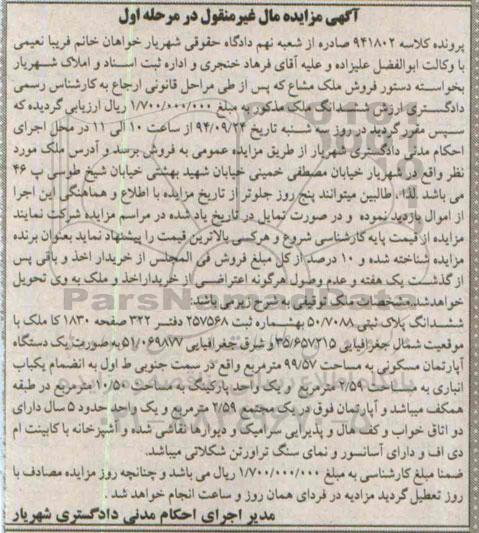 آگهی مزایده مال غیرمنقول در مرحله اول
پرونده کلاسه ۹۴۱۸۰۲ صادره از شعبه نهم دادگاه حقوقی شهریار خواهان خانم فریبا نعیمی
با وکالت ابوالفضل علیزاده و علیه آقای فرهاد خنجری و اداره ثبت اسناد و املاک شهریار
بخواسته دستور فروش ملک مشاع که پس از طی مراحل قانونی ارجاع به کارشناس رسمی
دادگستری ارزش ششدانگ ملک مذکور به مبلغ ۱/۷۰۰/۰۰۰/۰۰۰ ریال ارزیابی گردیده که
سپس مقرر گردید در روز سه شنبه تاریخ ۹۴/۰۹/۲۴ از ساعت ۱۰ الی ۱۱ در محل اجرای
احکام مدنی دادگستری شهریار از طریق مزایده عمومی به فروش برسد و آدرس ملک مورد
نظر واقع در شهریار خیابان مصطفی خمینی خیابان شهید بهشتی خیابان شیخ طوسی پ ۴۶
می باشد لذا طالبین میتوانند پنج روز جلوتر از تاریخ مزایده با اطلاع و هماهنگی این اجرا
از اموال بازدید نموده و در صورت تمایل در تاریخ یاد شده در مراسم مزایده شرکت نمایند
مزایده از قیمت پایه کارشناسی شروع و هرکسی بالاترین قیمت را پیشنهاد نماید بعنوان برنده
مزایده شناخته شده و ۱۰ درصد از کل مبلغ فروش فی المجلس از خریدار اخذ و باقی پس
از گذشت یک هفته و عدم وصول هرگونه اعتراضی از خریدار اخذ و ملک به وی تحویل
خواهد شد. مشخصات ملک توقیفی به شرح زیر می باشد:
ششدانگ پلاک ثبتی ۵۰/۷۰۸۸ بهشماره ثبت ۲۵۷۵۶۸ دفتر ۳۲۲ صفحه ۱۸۳۰ کا ملک با
موقعیت شمال جغرافیایی ۳۵/۶۵۷۲۱۵ و شرق جغرافیایی ۵۱/۰۶۹۸۷۷ به صورت یک دستگاه
آپارتمان مسکونی به مساحت ۹۹/۵۷ مترمربع واقع در سمت جنوبی ط اول به انضمام یکباب
انباری به مساحت ۲/۵۹ مترمربع و یک واحد پارکینگ به مساحت ۱۰/۵۰ مترمربع در طبقه
همکف میباشد و آپارتمان فوق در یک مجتمع ۲/۵۹ مترمربع و یک واحد حدود ۵ سال دارای
دو اتاق خواب و کف هال و پذیرایی سرامیک و دیوارها نقاشی شده و آشپزخانه با کابینت ام
دی اف و دارای آسانسور و نمای سنگ تراورتن شکلاتی میباشد.
ضمنا مبلغ کارشناسی به مبلغ ۱/۷۰۰/۰۰۰/۰۰۰ ریال می باشد و چنانچه روز مزایده مصادف با
روز تعطیل گردید مزادیه در فردای همان روز و ساعت انجام خواهد شد .
مدیر اجرای احکام مدنی دادگستری شهریار
ParsNamadData